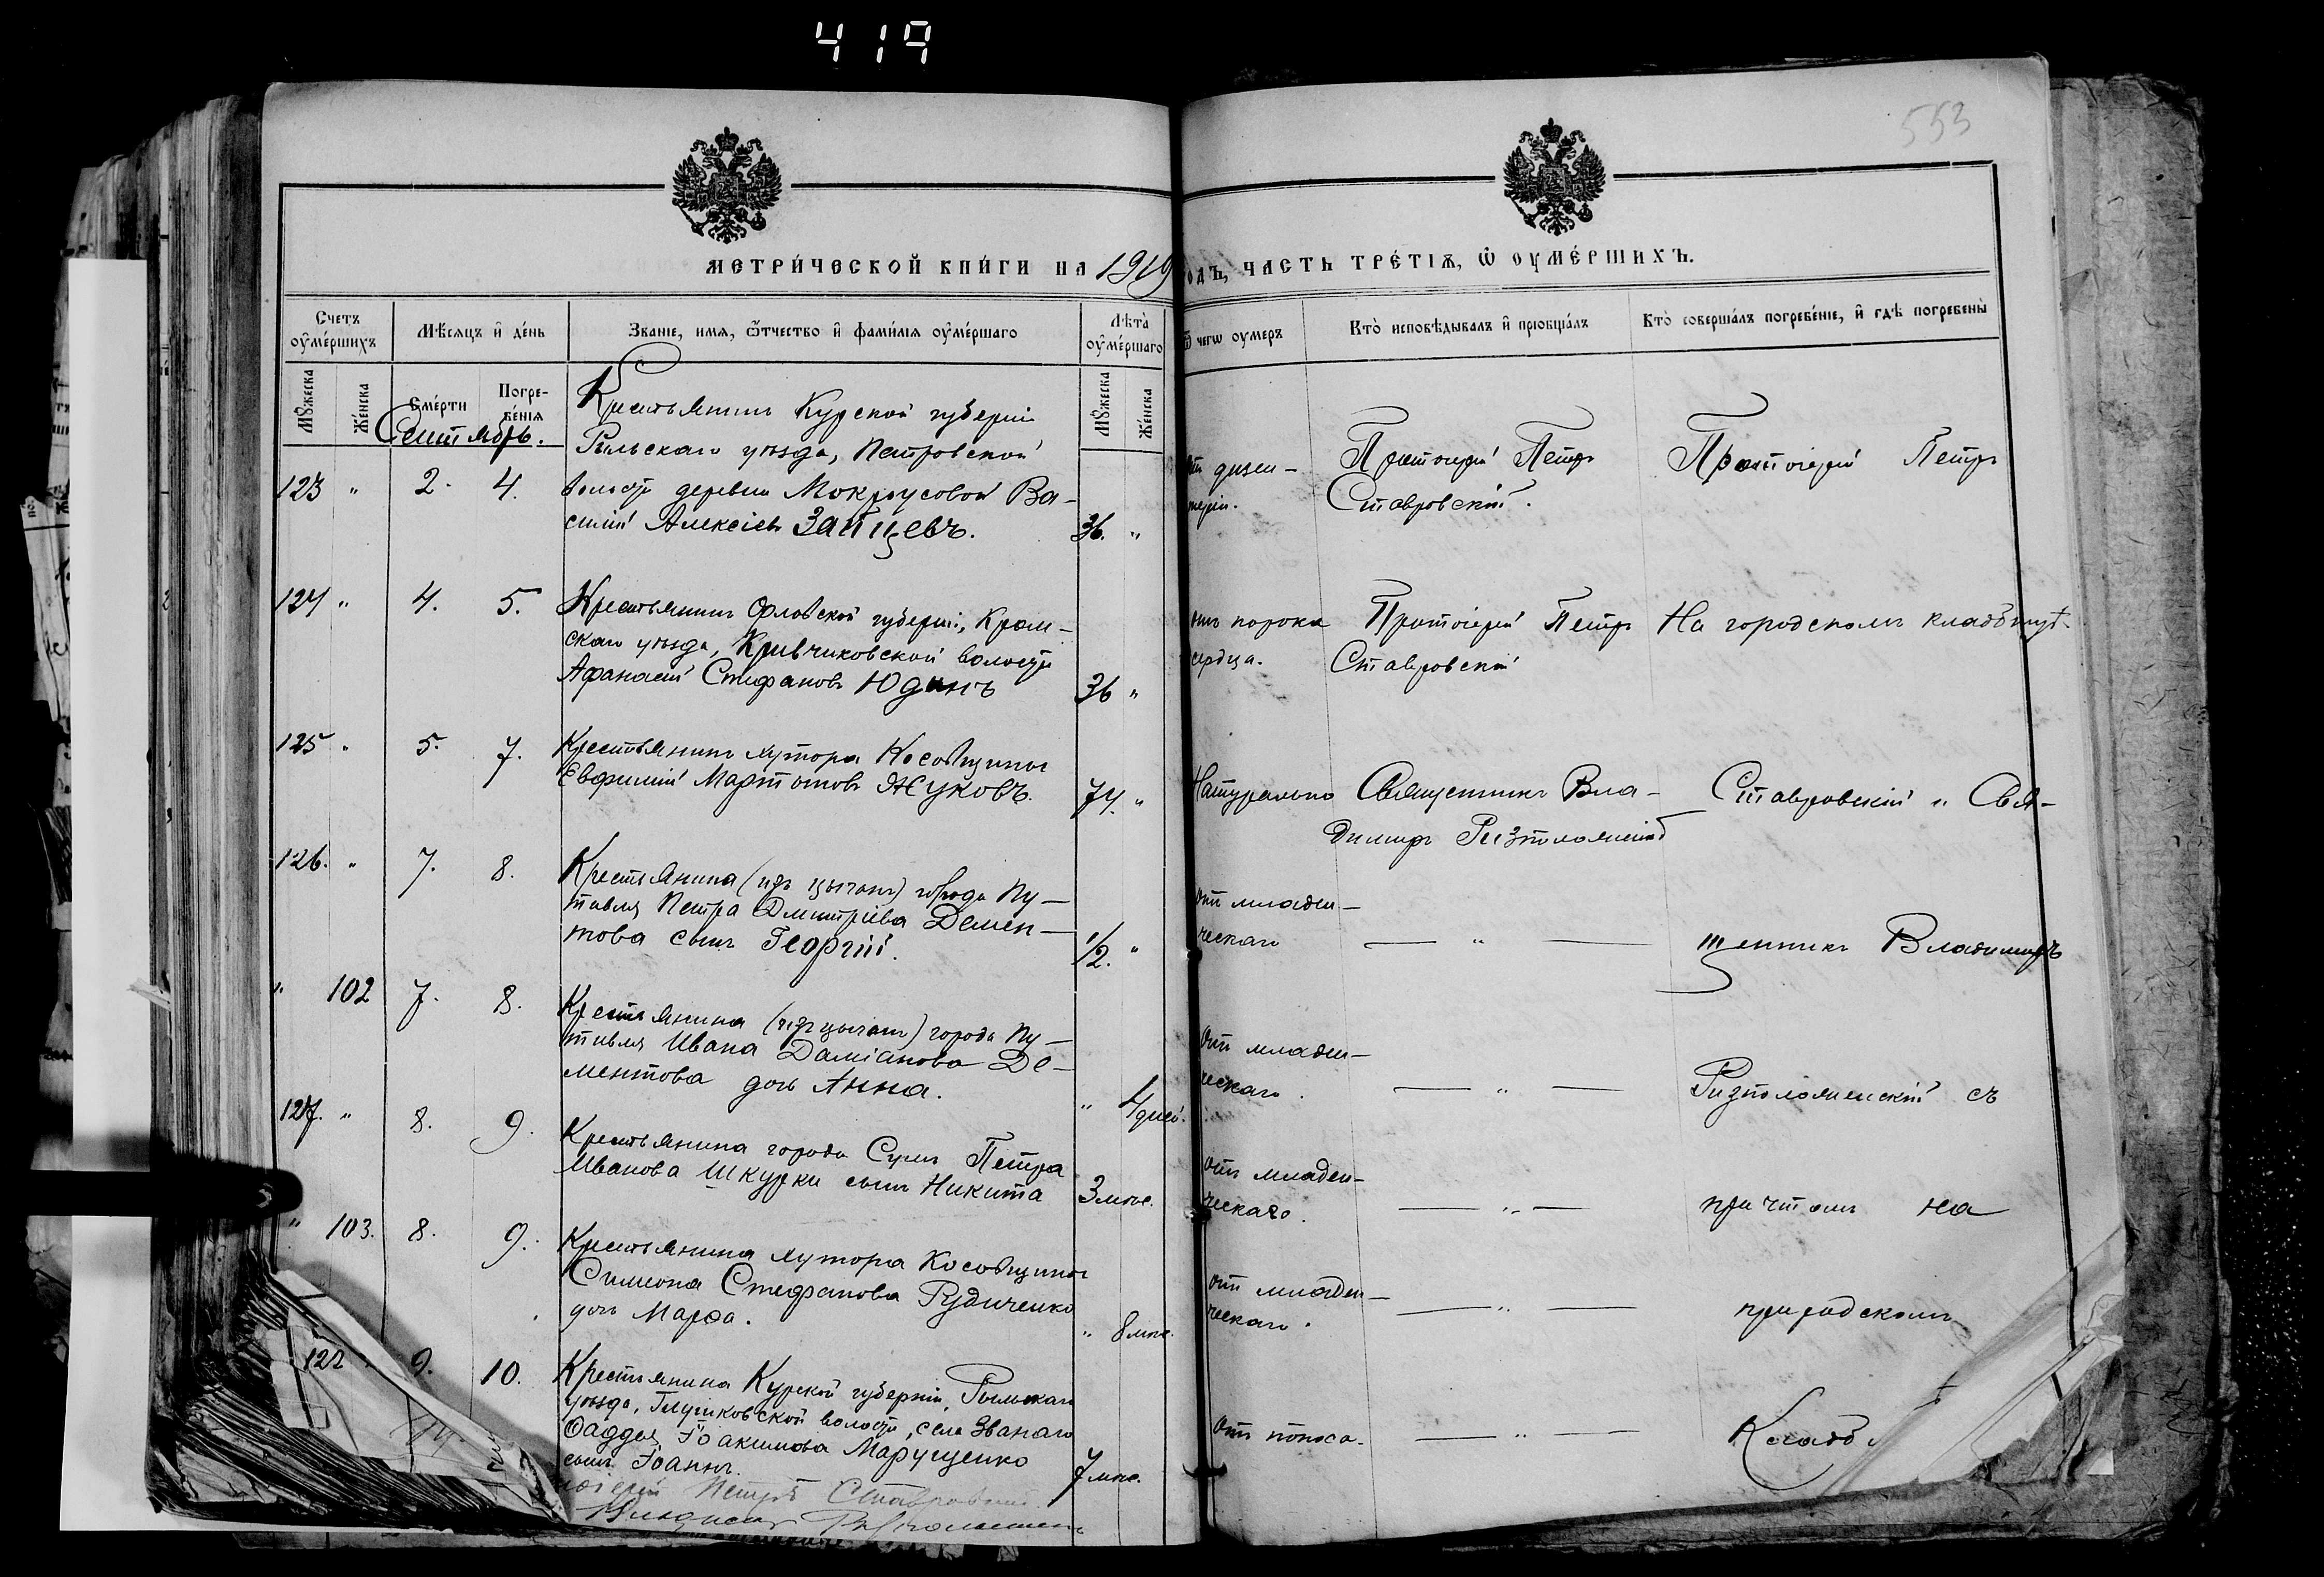 419
553
МЕТРИ́ЧЕСКОЙ КНИ́ГИ НА 1919
ОДЪ, ЧАСТЬ ТРЕ́ТІѦ, Ѿ ОУМЕ́РШИХЪ.
Счетъ оумéршихъ
Мѣ́сяцъ и дéнь
Звáніе, имя, ѿтчество и фамилія оумéршаго
Лѣтà оумéршаго
Ѿ чегѡ оумеръ
Ктò исповѣдывалъ и пріобщáлъ
Ктò совершáлъ погребéніе, и гдѣ погребены
Мꙋжеска
Жéнска
Смéрти
Погребéнія
Мꙋжеска
Жéнска
Сентябрь.
Крестьянинъ Курской губерніи
Рыльскаго уѣзда, Петровской
123 " 2. 4. волости деревни Мокроусовой Ва-
силій Алексіевъ Зайцевъ. 36. "
отъ дизен-
теріи.
Протоіерей Петръ
Ставровскій.
Протоіерей Петръ
124 " 4. 5. Крестьянинъ Орловской губерніи, Кром-
скаго уѣзда, Кривчиковской волости
Афанасій Стефановъ Юдинъ 36 "
отъ порока
сердца.
Протоіерей Петръ
Ставровскій
На городскомъ кладбищѣ.
125 " 5. 7. Крестьянинъ хутора Косовщины
Евфимій Мартоновъ Жуковъ. 74. "
Натурально
Священникъ Вла-
димиръ Ризположенскій
Ставровскій и Свя-
126. " 7. 8. Крестьянина (изъ цыганъ) города Пу-
тивля Петра Дмитріева Демен-
това сынъ Георгій. 1/2. "
отъ младен-
ческаго
— " —
щенникъ Владимиръ
" 102 7. 8. Крестьянина (изъ цыганъ) города Пу-
тивля Ивана Даміанова Де-
ментова дочь Анна. " 4 дней.
отъ младен-
ческаго.
— " —
Ризположенскій съ
127. " 8. 9. Крестьянина города Сумъ Петра
Иванова Шкурки сынъ Никита 3 мѣс.
отъ младен-
ческаго.
— " —
причтомъ на
" 103. 8. 9. Крестьянина хутора Косовщины
Симеона Стефанова Рудиченко
дочь Марѳа. " 8 мѣс.
отъ младен-
ческаго.
— " —
пригодскомъ
122 9. 10. Крестьянина Курской губерніи, Рыльскаго
уѣзда, Глушковской волости, села Званаго
Ѳаддея Іоакимова Марущенко
сынъ Іоаннъ. 7 мѣс.
отъ поноса.
— " —
Кладб
Петръ Ставровскій